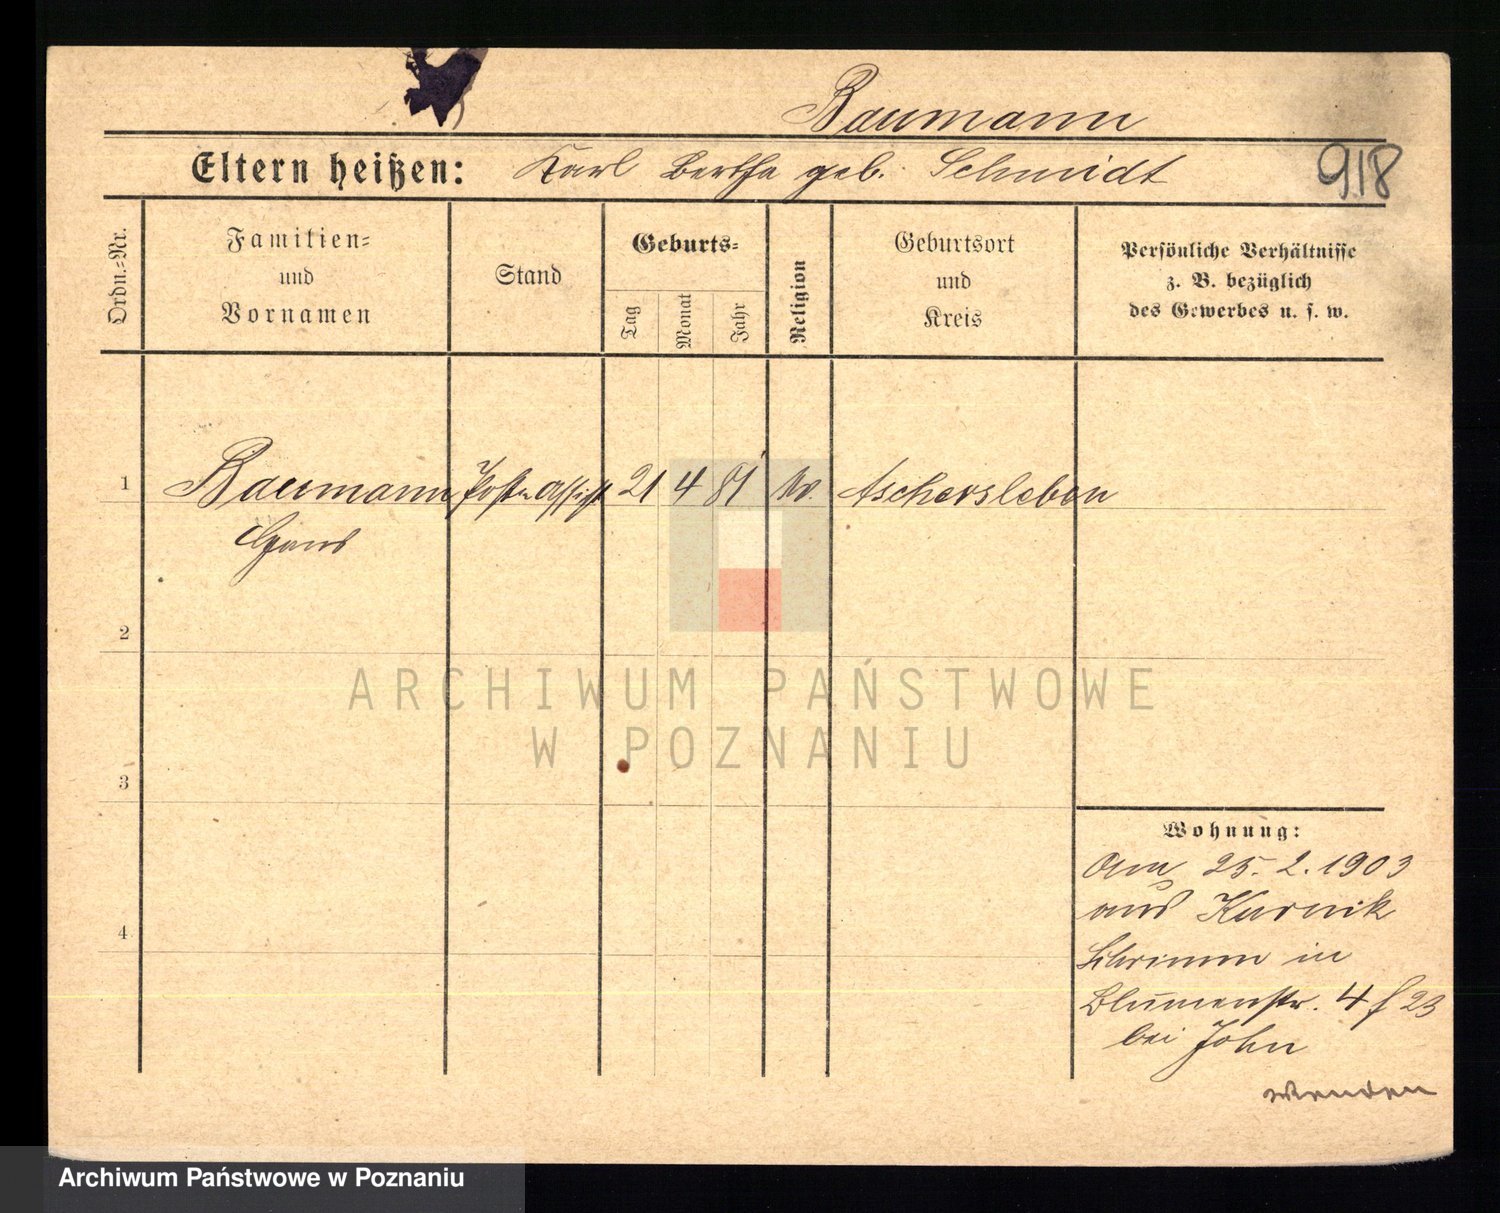 Baumann
Eltern heißen: Karl Bertha geb. Schmidt
918
Ordn.=Nr.
Familien=
und
Vornamen
Stand
Geburts=
Tag
Monat
Jahr
Religion
Geburtsort
und
Kreis
Persönliche Verhältnisse
z. B. bezüglich
des Gewerbes u. s. w.
1 Baumann Post=Assist 21 4 81 Aschersleben
Hans
2
ARCHIWUM PAŃSTWOWE
W POZNANIU
3
4
Wohnung:
Am 25. 2. 1903
aus Kurnik
Schrimm in
Blumenstr. 4 f 23
bei John
wenden
Archiwum Państwowe w Poznaniu